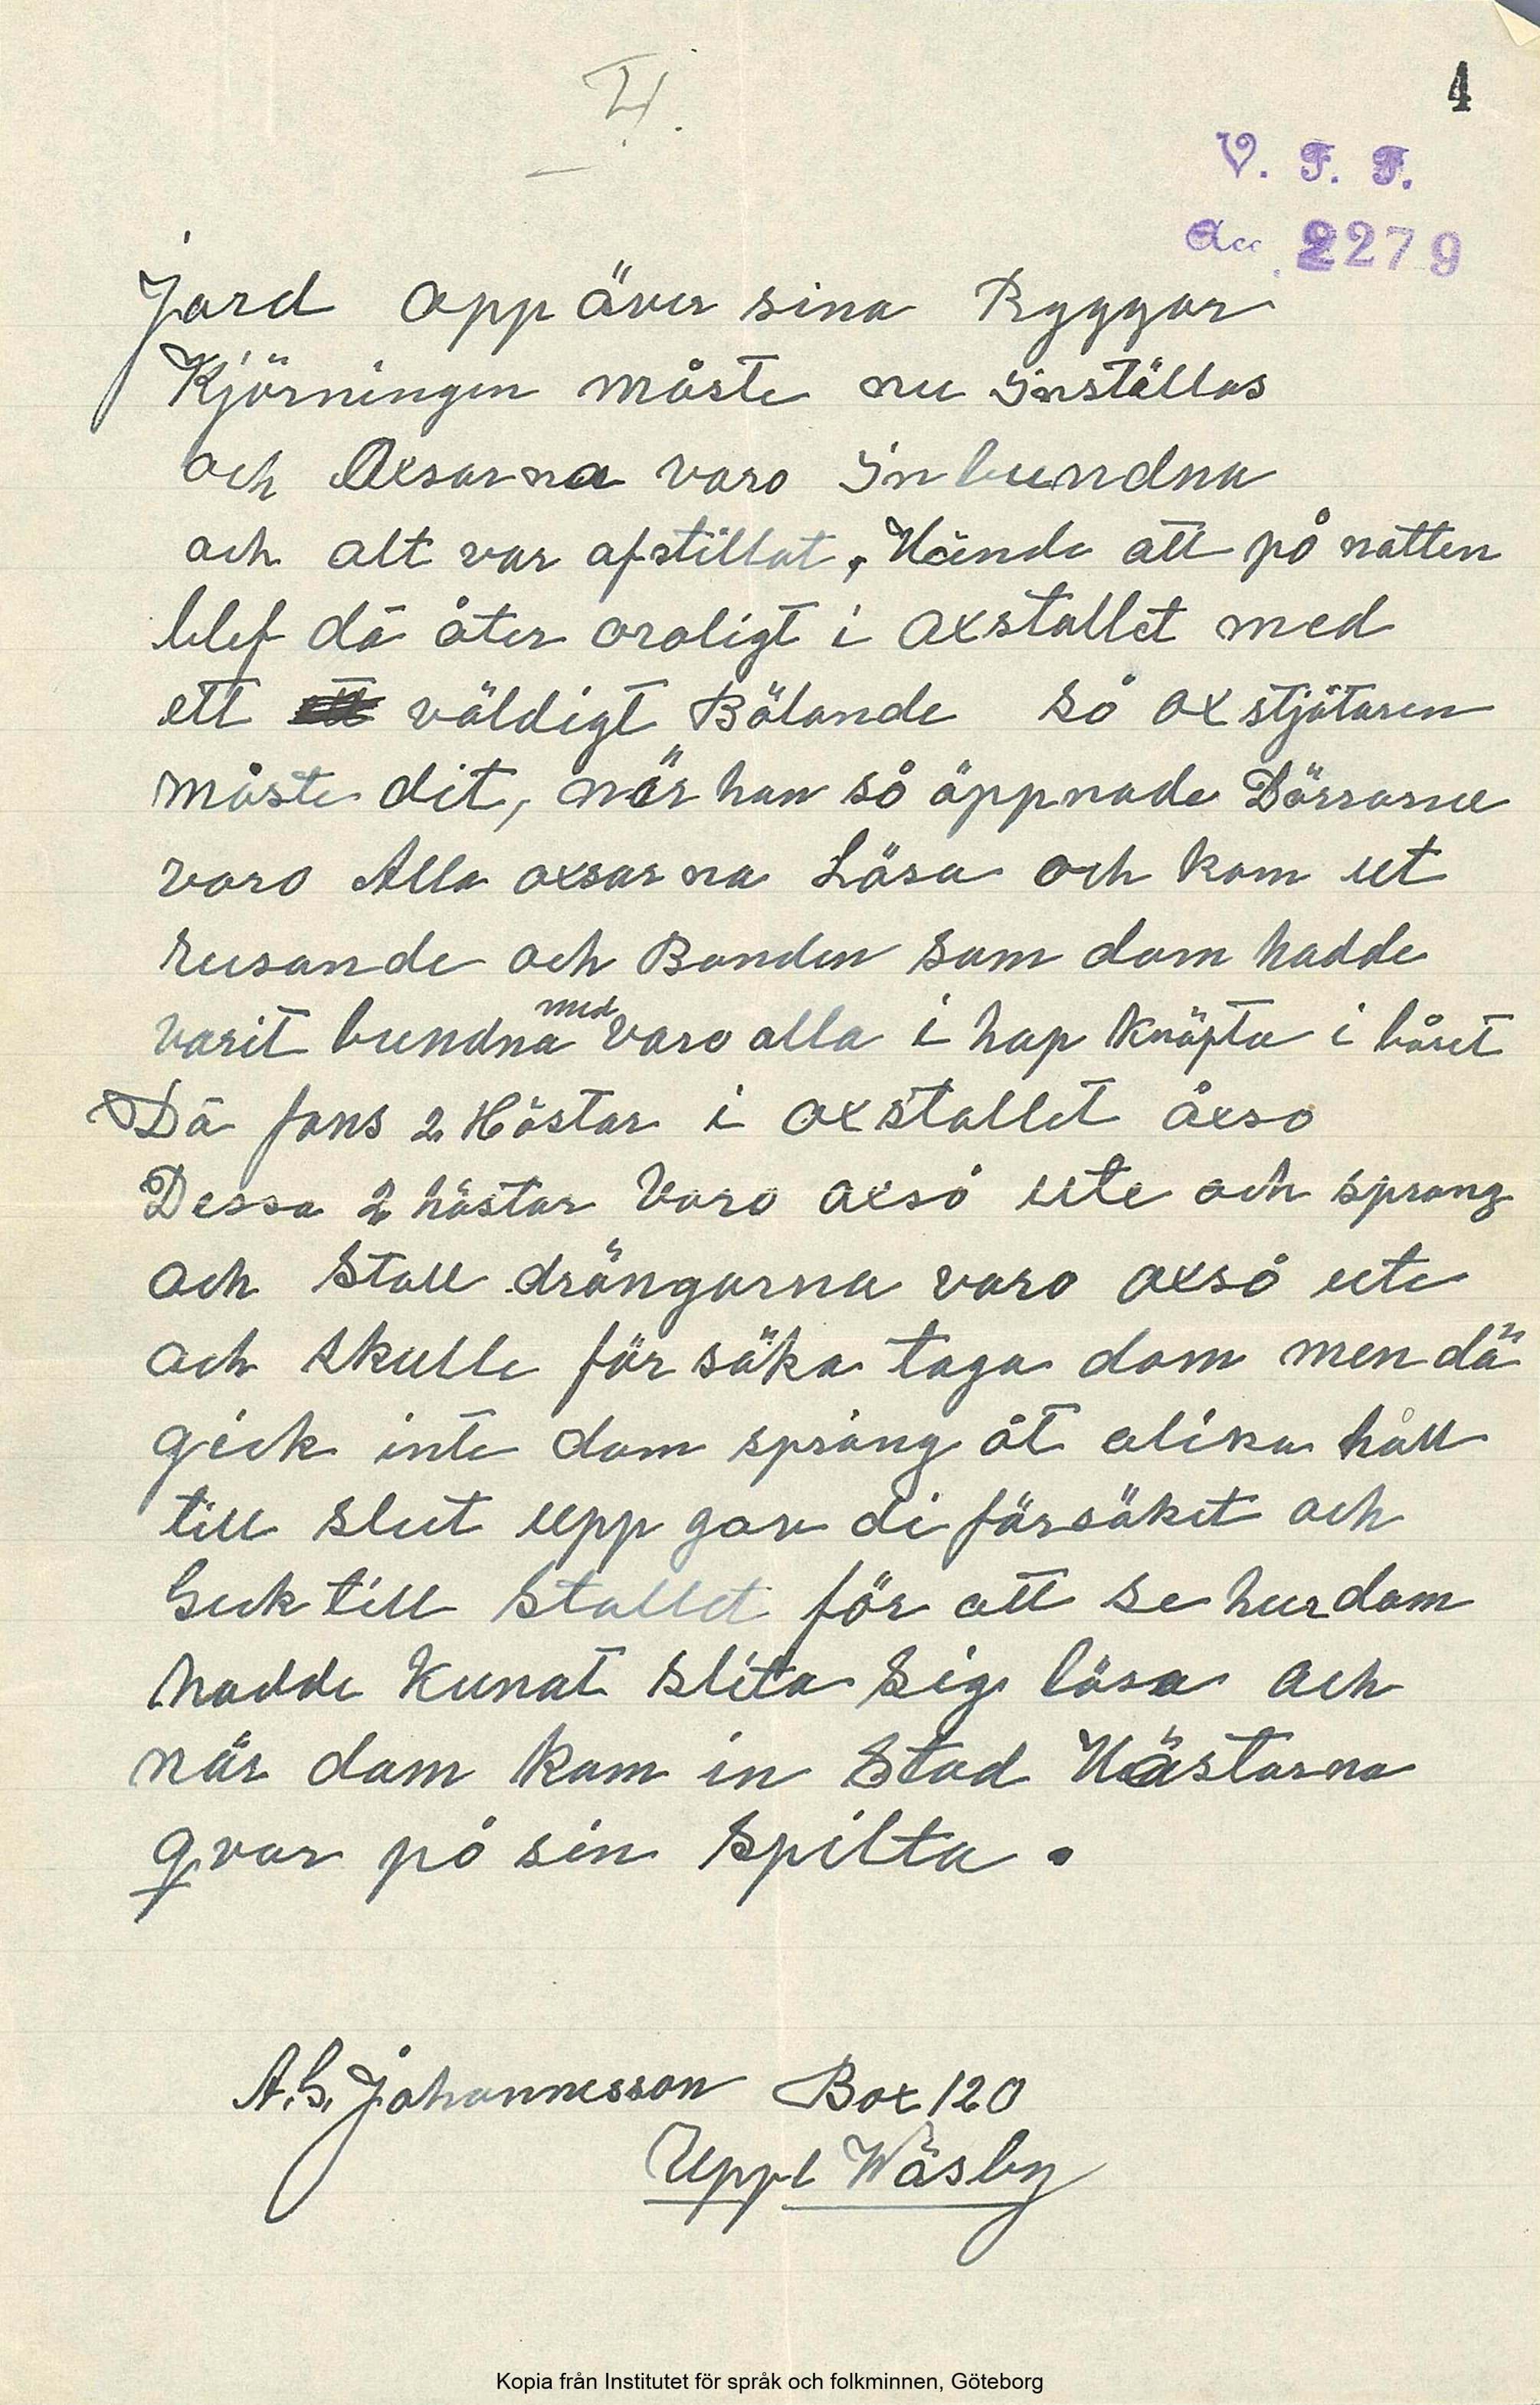 4.
4
V. F. F.
Acc. 2279
Jord opp över sina Ryggar
Kjörningen måste nu Inställas
och Oxsarna voro Inbundna
och alt var afstillat, Hände att på natten
blef dä åter oroligt i oxstallet med
ett väldigt Bölande så oxstjötaren
måste dit, när han så öppnade Dörrarne
voro Alla oxsarna Lösa och kom ut
rusande och Banden som dom hadde
varit bundna med voro alla i hop Knöpta i båset
Dä fans 2 Hästar i oxstallet åxso
Dessa 2 hästar Voro oxså ute och sprang
och Stall drängarna voro oxså ute
och skulle för söka taga dom men dä
gick inte dom sprang åt olika håll
till slut upp gav di försöket och
Gick till Stallet för att se hur dom
hadde kunat slita sig lösa och
när dom kom in Stod Hästarna
qvar på sin spilta.
A. G. Johannesson Box 120
Uppl Wäsby
Kopia från Institutet för språk och folkminnen, Göteborg